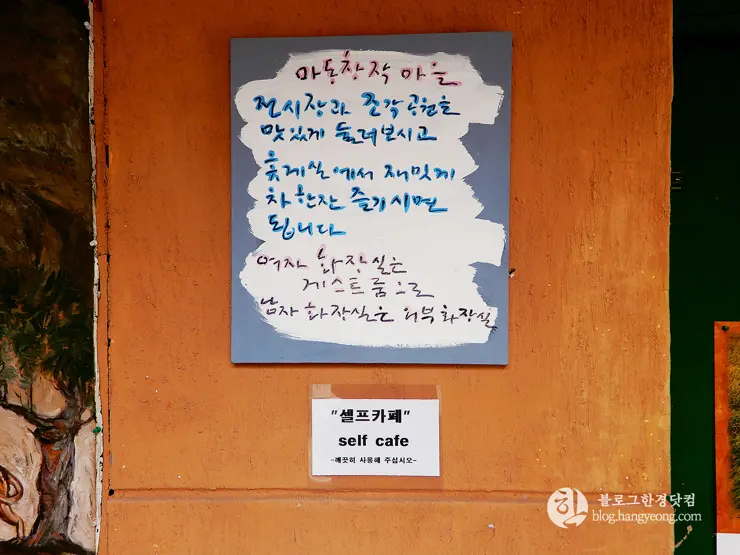 마동창작마을
전시장과 조각공원을
맛있게 둘러보시고
휴게실에서 재밋게
차 한잔 즐기시면
됩니다
여자 화장실은
게스트룸으로
남자 화장실은 외부화장실
"셀프카페"
self cafe
-깨끗히 사용해 주십시오-
한
블로그한경닷컴
blog.hangyeong.com